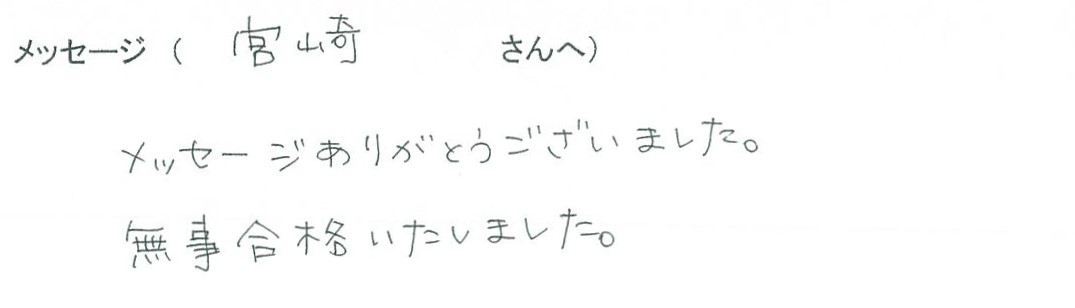 メッセージ ( 宮崎 さんへ)
メッセージありがとうございました。
無事合格いたしました。